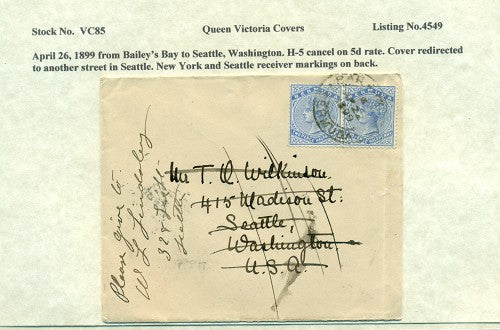 Stock No. VC85 Queen Victoria Covers Listing No.4549
April 26, 1899 from Bailey's Bay to Seattle, Washington. H-5 cancel on 5d rate. Cover redirected
to another street in Seattle. New York and Seattle receiver markings on back.
BERMUDA BERMUDA
Mr T. Q. Wilkinson
415 Madison St.
Seattle,
Washington
U.S.A.
Please give to
W L
328
Seattle